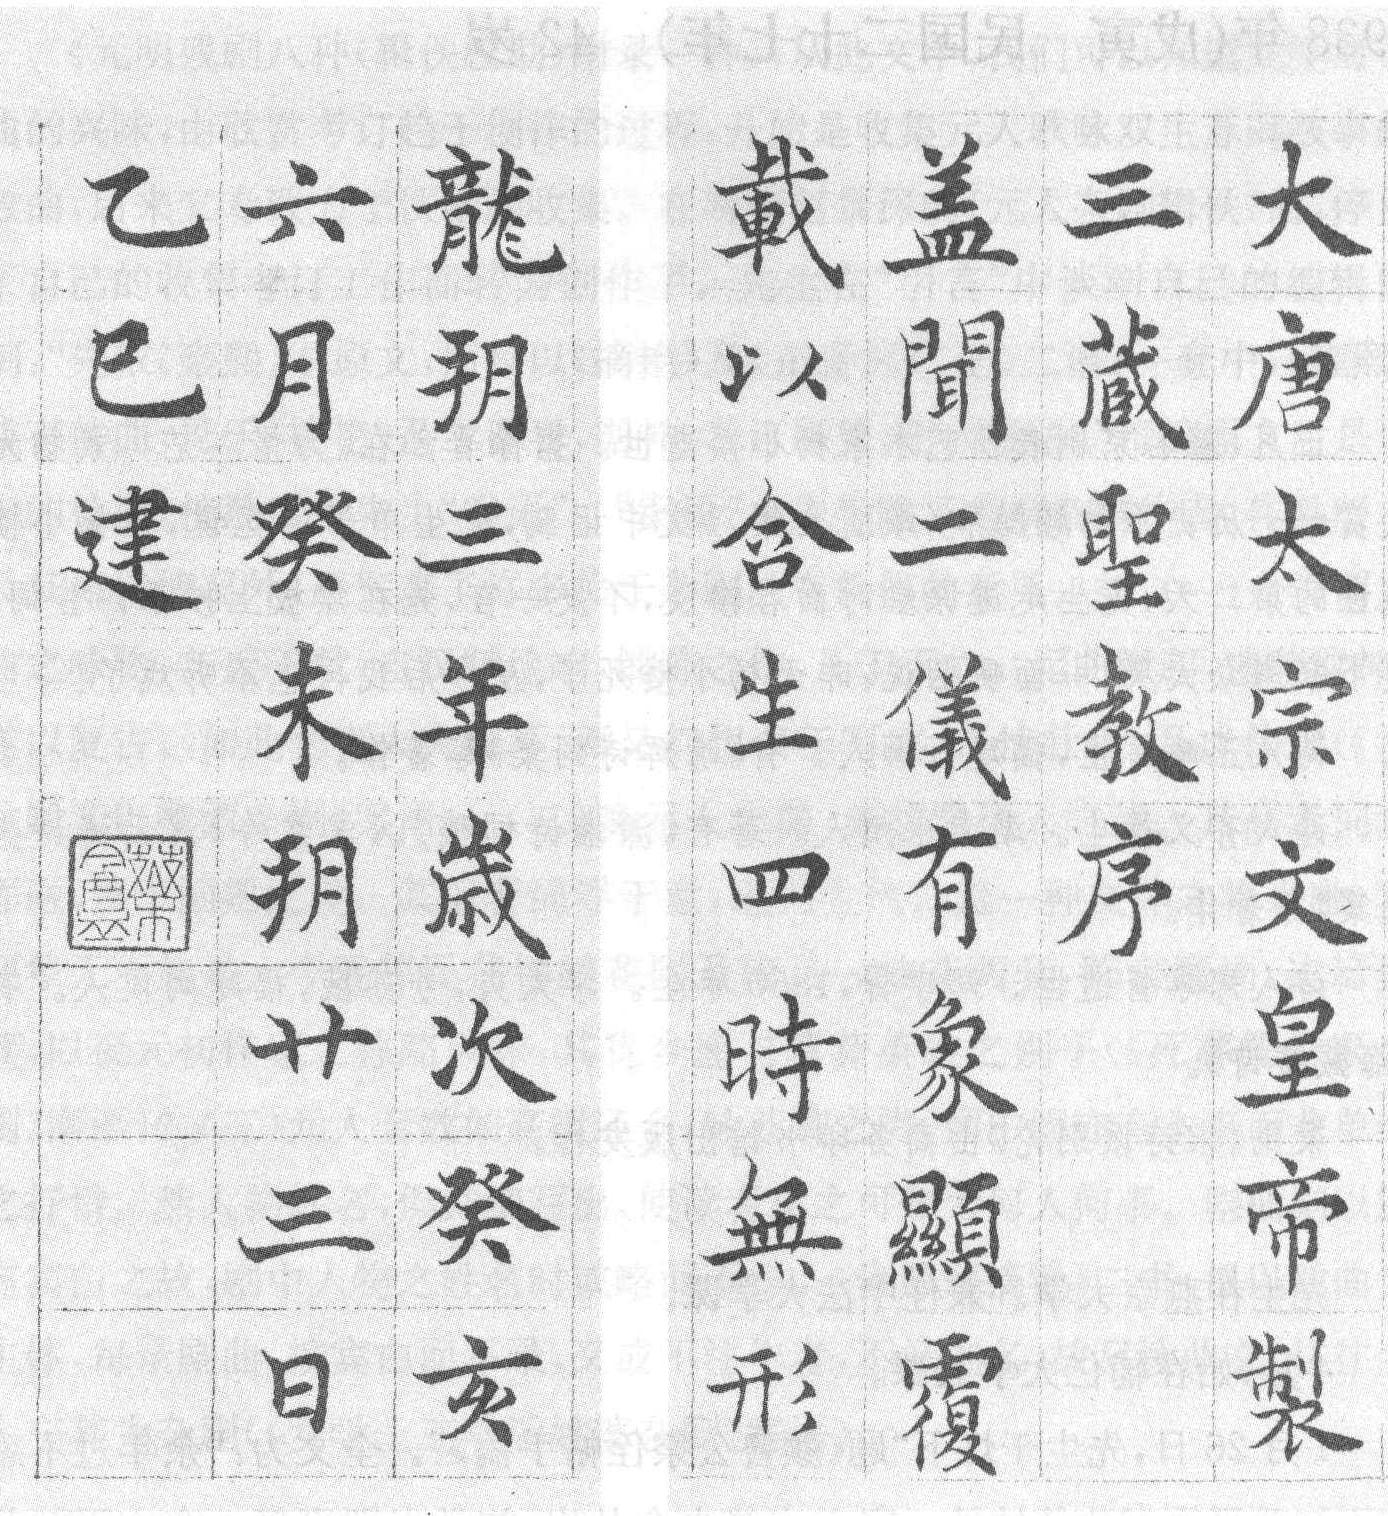 大唐太宗文皇帝製
三蔵聖教序
盖聞二儀有象顯覆
載以含生四時無形
龍朔三年歲次癸亥
六月癸未朔廿三日
乙巳建